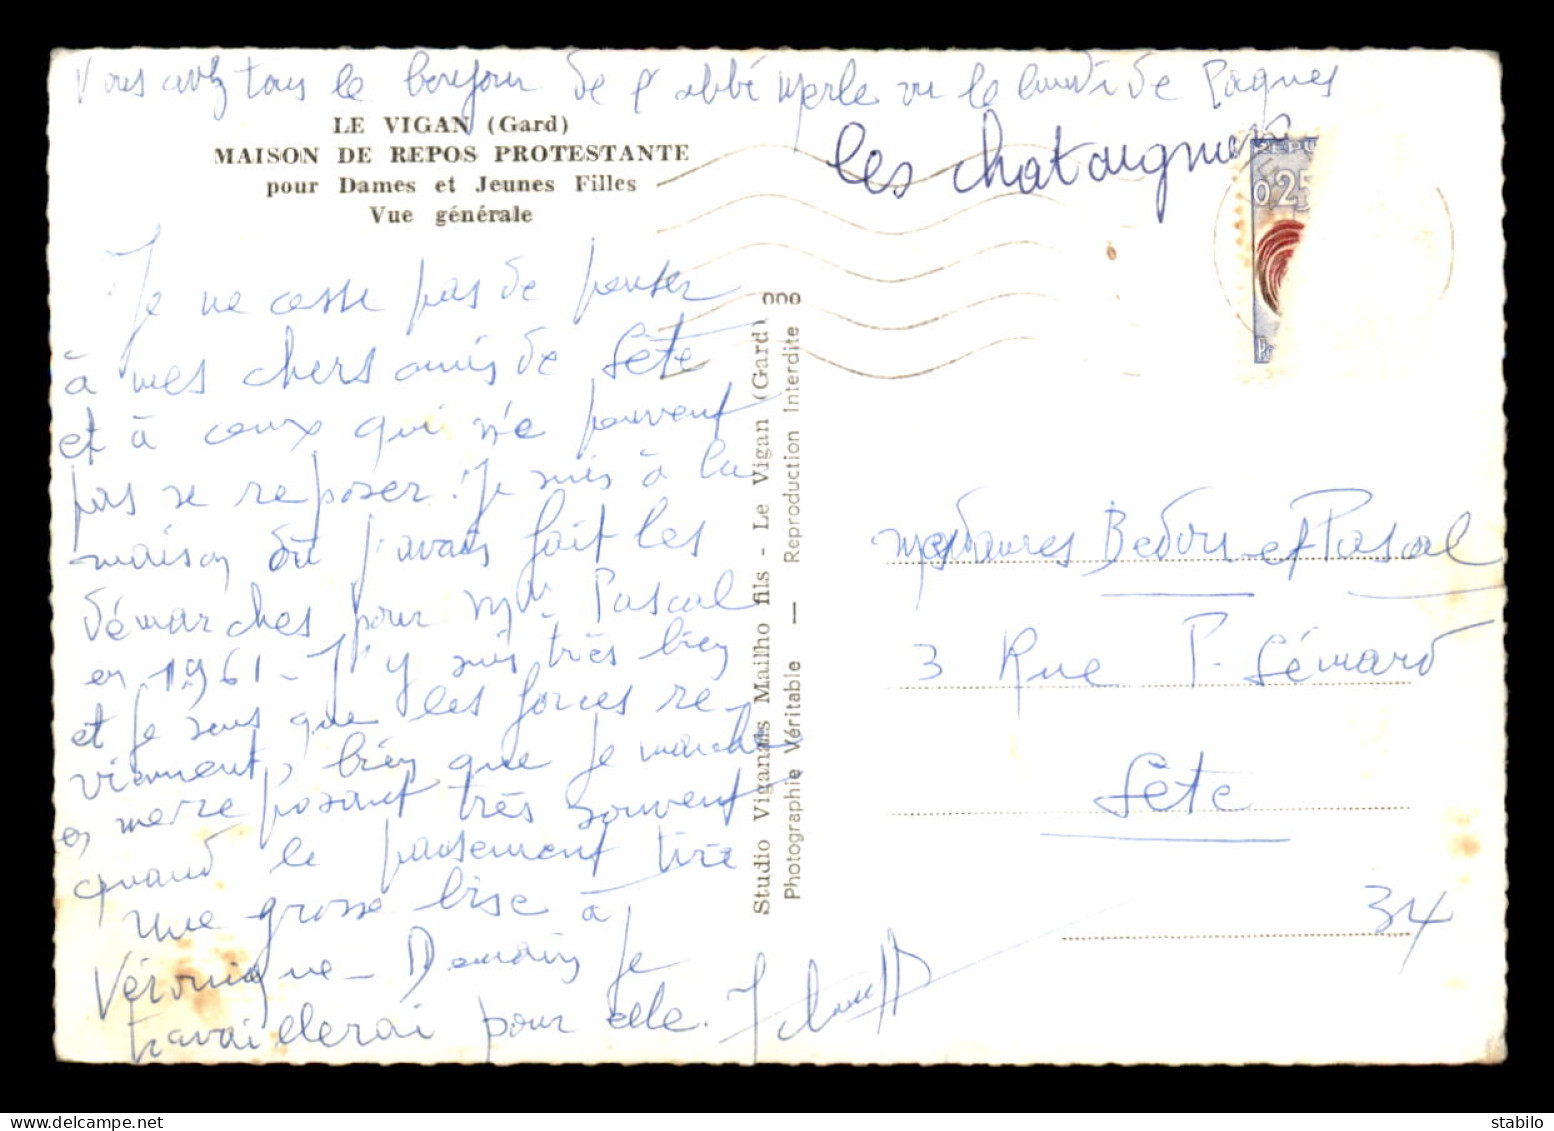 Vous avez tous le bonjour de l'abbé Merle vu le lundi de Pâques
LE VIGAN (Gard)
MAISON DE REPOS PROTESTANTE
pour Dames et Jeunes Filles
Vue générale
les chataigniers
REPU
0,25
Je ne cesse pas de penser
à mes chers amis de Sète
et à ceux qui ne peuvent
pas se reposer. Je suis à la
maison où j'avais fait les
démarches pour Mme Pascal
en 1961 - J'y suis très bien
et je sens que les forces re-
viennent, bien que je marche
en me reposant très souvent
quand le pansement tire
Une grosse bise à
Véronique - Demain je
travaillerai pour elle.
ooo
Studio Viganais Mailho fils - Le Vigan (Gard)
Photographie Véritable — Reproduction Interdite
Mesdames Bedou et Pascal
3 Rue P. Sémard
Sète
34
delcampe.net
stabilo